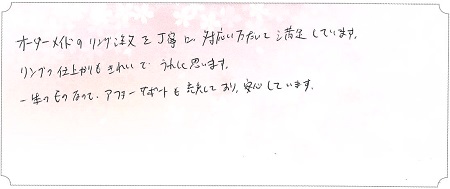 オーダーメイドのリング注文を丁寧に対応いただいて満足しています。
リングの仕上がりもきれいで、うれしく思います。
一生のものなので、アフターサポートも充実しており、安心しています。